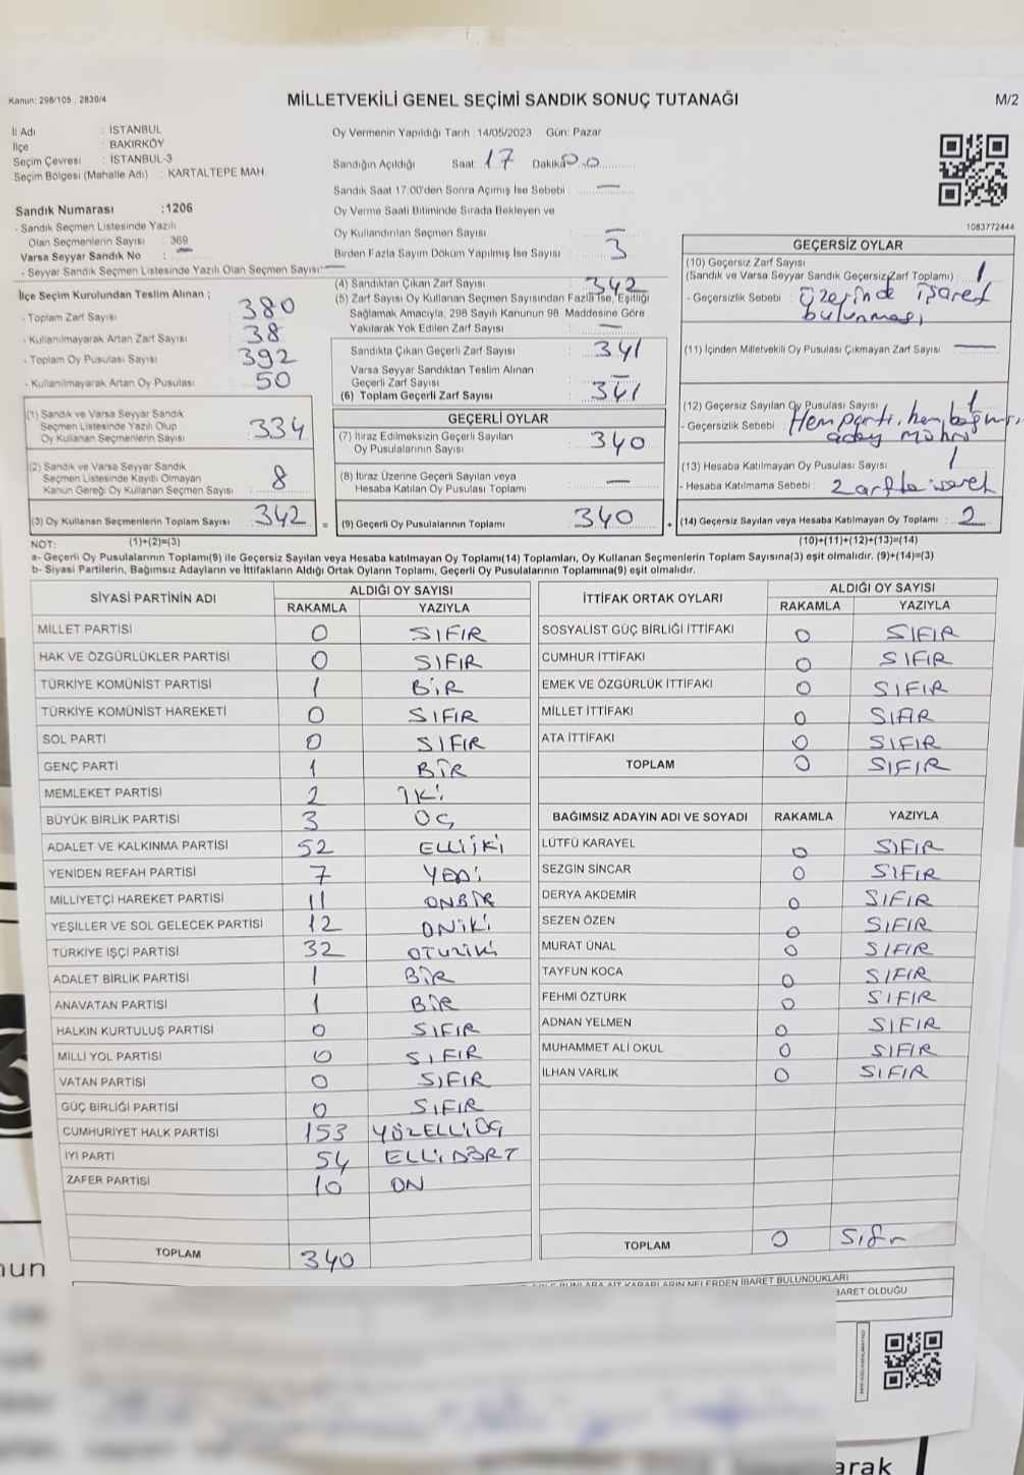 Kanun: 298/105 , 2839/4
MİLLETVEKİLİ GENEL SEÇİMİ SANDIK SONUÇ TUTANAĞI
M/2
İl Adı : İSTANBUL
İlçe : BAKIRKÖY
Seçim Çevresi : İSTANBUL-3
Seçim Bölgesi (Mahalle Adı) : KARTALTEPE MAH.
Oy Vermenin Yapıldığı Tarih :14/05/2023 Gün: Pazar
Sandığın Açıldığı Saat 17 Dakika 00
Sandık Saat 17.00'den Sonra Açılmış İse Sebebi : —
Oy Verme Saati Bitiminde Sırada Bekleyen ve
Oy Kullandırılan Seçmen Sayısı —
Birden Fazla Sayım Döküm Yapılmış İse Sayısı 3
Sandık Numarası :1206
- Sandık Seçmen Listesinde Yazılı
Olan Seçmenlerin Sayısı : 369
Varsa Seyyar Sandık No :
- Seyyar Sandık Seçmen Listesinde Yazılı Olan Seçmen Sayısı: —
1083772444
İlçe Seçim Kurulundan Teslim Alınan ;
- Toplam Zarf Sayısı 380
- Kullanılmayarak Artan Zarf Sayısı 38
- Toplam Oy Pusulası Sayısı 392
- Kullanılmayarak Artan Oy Pusulası 50
(1) Sandık ve Varsa Seyyar Sandık
Seçmen Listesinde Yazılı Olup
Oy Kullanan Seçmenlerin Sayısı 334
(2) Sandık ve Varsa Seyyar Sandık
Seçmen Listesinde Kayıtlı Olmayan
Kanun Gereği Oy Kullanan Seçmen Sayısı 8
(3) Oy Kullanan Seçmenlerin Toplam Sayısı 342 =
(4) Sandıktan Çıkan Zarf Sayısı : 342
(5) Zarf Sayısı Oy Kullanan Seçmen Sayısından Fazla İse, Eşitliği
Sağlamak Amacıyla, 298 Sayılı Kanunun 98. Maddesine Göre
Yakılarak Yok Edilen Zarf Sayısı : —
Sandıkta Çıkan Geçerli Zarf Sayısı : 341
Varsa Seyyar Sandıktan Teslim Alınan
Geçerli Zarf Sayısı : —
(6) Toplam Geçerli Zarf Sayısı : 341
GEÇERLİ OYLAR
(7) İtiraz Edilmeksizin Geçerli Sayılan
Oy Pusulalarının Sayısı : 340
(8) İtiraz Üzerine Geçerli Sayılan veya
Hesaba Katılan Oy Pusulası Toplamı : —
(9) Geçerli Oy Pusulalarının Toplamı 340 +
GEÇERSİZ OYLAR
(10) Geçersiz Zarf Sayısı
(Sandık ve Varsa Seyyar Sandık Geçersiz Zarf Toplamı) : 1
- Geçersizlik Sebebi : Üzerinde işaret
bulunması
(11) İçinden Milletvekili Oy Pusulası Çıkmayan Zarf Sayısı : —
(12) Geçersiz Sayılan Oy Pusulası Sayısı : 1
- Geçersizlik Sebebi : Hem parti, hem bağmsı
aday mührü
(13) Hesaba Katılmayan Oy Pusulası Sayısı : 1
- Hesaba Katılmama Sebebi : zarfta işaret
(14) Geçersiz Sayılan veya Hesaba Katılmayan Oy Toplamı : 2
NOT: (1)+(2)=(3)
(10)+(11)+(12)+(13)=(14)
a- Geçerli Oy Pusulalarının Toplamı(9) ile Geçersiz Sayılan veya Hesaba katılmayan Oy Toplamı(14) Toplamları, Oy Kullanan Seçmenlerin Toplam Sayısına(3) eşit olmalıdır. (9)+(14)=(3)
b- Siyasi Partilerin, Bağımsız Adayların ve İttifakların Aldığı Ortak Oyların Toplamı, Geçerli Oy Pusulalarının Toplamına(9) eşit olmalıdır.
SİYASİ PARTİNİN ADI ALDIĞI OY SAYISI
RAKAMLA YAZIYLA
MİLLET PARTİSİ 0 SIFIR
HAK VE ÖZGÜRLÜKLER PARTİSİ 0 SIFIR
TÜRKİYE KOMÜNİST PARTİSİ 1 BİR
TÜRKİYE KOMÜNİST HAREKETİ 0 SIFIR
SOL PARTİ 0 SIFIR
GENÇ PARTİ 1 BİR
MEMLEKET PARTİSİ 2 İKİ
BÜYÜK BİRLİK PARTİSİ 3 ÜÇ
ADALET VE KALKINMA PARTİSİ 52 ELLİİKİ
YENİDEN REFAH PARTİSİ 7 YEDİ
MİLLİYETÇİ HAREKET PARTİSİ 11 ONBİR
YEŞİLLER VE SOL GELECEK PARTİSİ 12 ONİKİ
TÜRKİYE İŞÇİ PARTİSİ 32 OTUZİKİ
ADALET BİRLİK PARTİSİ 1 BİR
ANAVATAN PARTİSİ 1 BİR
HALKIN KURTULUŞ PARTİSİ 0 SIFIR
MİLLİ YOL PARTİSİ 0 SIFIR
VATAN PARTİSİ 0 SIFIR
GÜÇ BİRLİĞİ PARTİSİ 0 SIFIR
CUMHURİYET HALK PARTİSİ 153 YÜZELLİÜÇ
İYİ PARTİ 54 ELLİDÖRT
ZAFER PARTİSİ 10 ON
TOPLAM 340
İTTİFAK ORTAK OYLARI ALDIĞI OY SAYISI
RAKAMLA YAZIYLA
SOSYALİST GÜÇ BİRLİĞİ İTTİFAKI 0 SIFIR
CUMHUR İTTİFAKI 0 SIFIR
EMEK VE ÖZGÜRLÜK İTTİFAKI 0 SIFIR
MİLLET İTTİFAKI 0 SIFIR
ATA İTTİFAKI 0 SIFIR
TOPLAM 0 SIFIR
BAĞIMSIZ ADAYIN ADI VE SOYADI RAKAMLA YAZIYLA
LÜTFÜ KARAYEL 0 SIFIR
SEZGİN SİNCAR 0 SIFIR
DERYA AKDEMİR 0 SIFIR
SEZEN ÖZEN 0 SIFIR
MURAT ÜNAL 0 SIFIR
TAYFUN KOCA 0 SIFIR
FEHMİ ÖZTÜRK 0 SIFIR
ADNAN YELMEN 0 SIFIR
MUHAMMET ALİ OKUL 0 SIFIR
İLHAN VARLIK 0 SIFIR
TOPLAM 0 Sıfır
BUNLARA AİT KARARLARIN NELERDEN İBARET BULUNDUKLARI
İBARET OLDUĞU
nun
arak